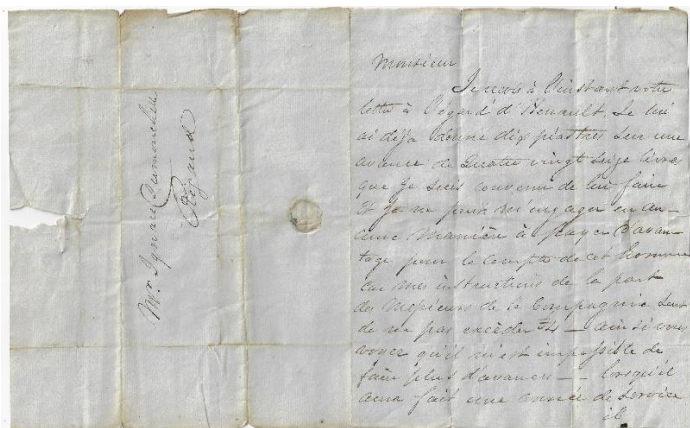 Mr Ignace Dumouchelle
Rigaud
Monsieur
Je reçois à l'instant votre
lettre à l'égard d'Henault. Je lui
ai déja donné dix piastres sur une
avance de quatre vingt seize livres
que je suis convenu de lui faire
et je ne puis m'engager en au-
cune manière à payer d'avan-
tage pour le compte de cet homme
car mes instructions de la part
des Messieurs de la Compagnie sont
de ne pas excéder — ainsi vous
voyez qu'il m'est impossible de
faire plus d'avances — lorsqu'il
aura fait une année de service
il